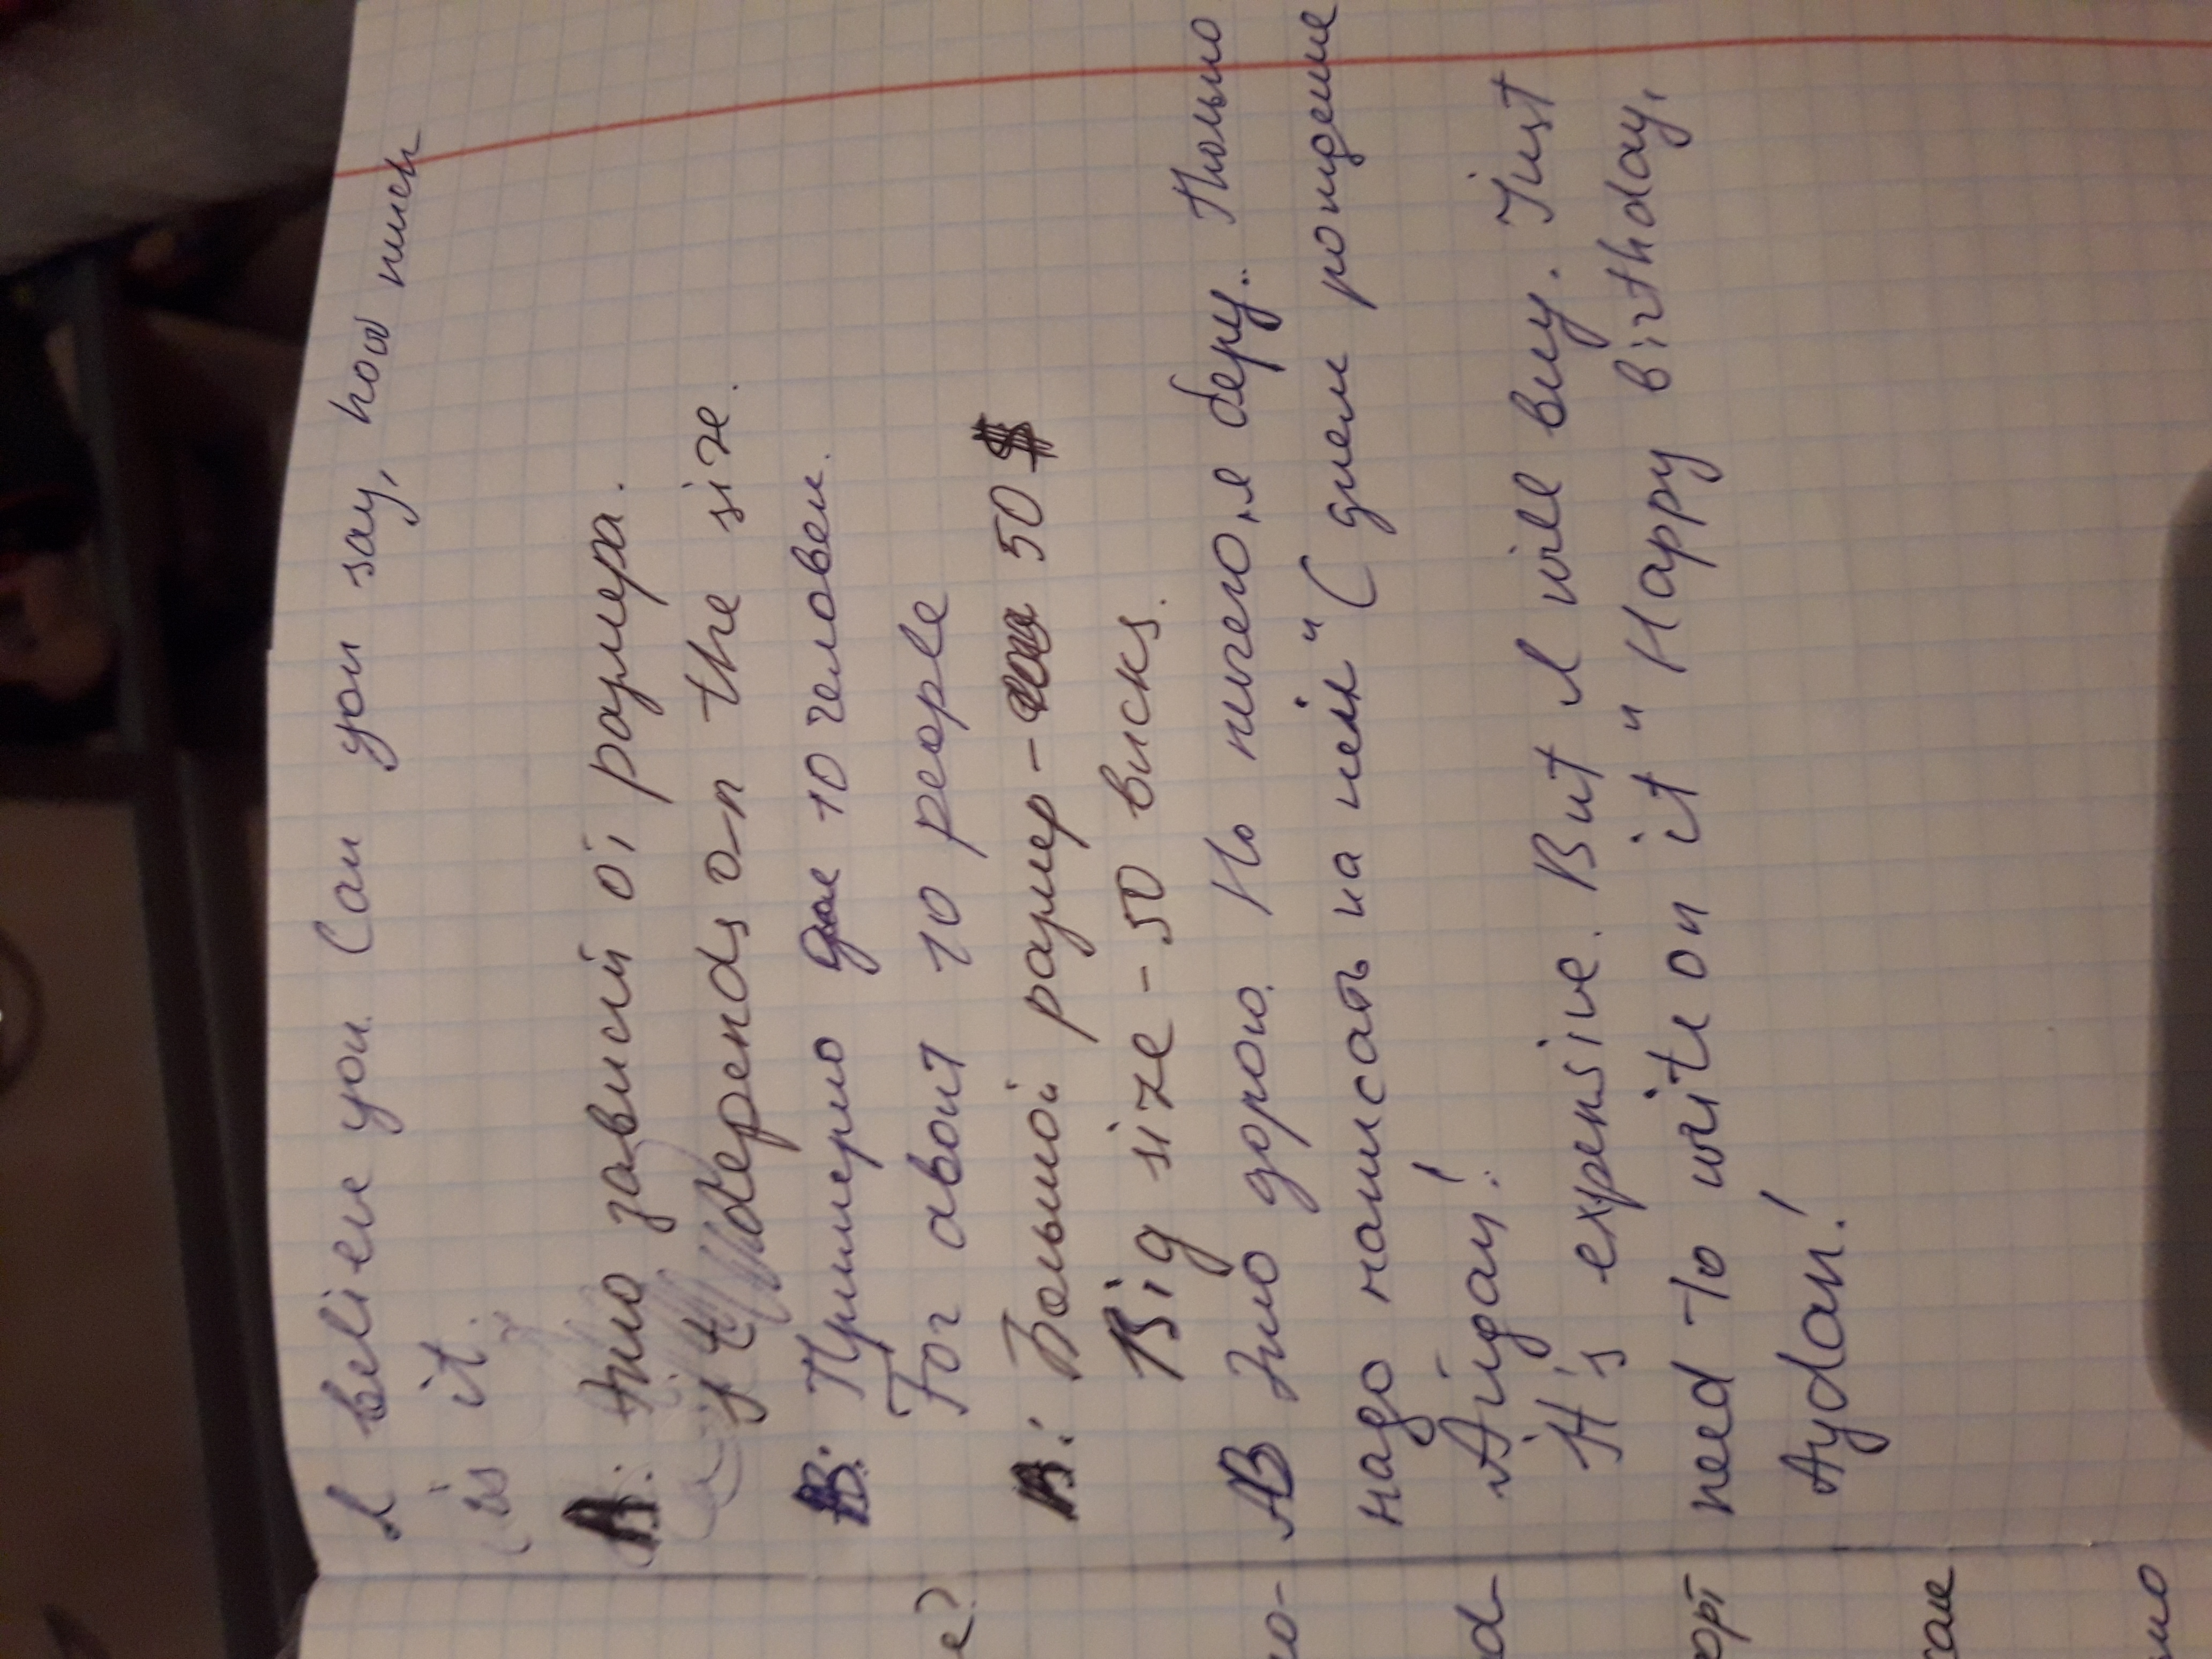 I believe you. Can you say, how much
is it.
A: Это зависит от размера.
it depends on the size.
B: Примерно для 10 человек.
For about 10 people
A: Большой размер - 50 $
Big size - 50 bucks.
AB Это дорого. Но ничего, я беру. Только
надо написать на нём " С днем рождение
Айдан!
It's expensive. But I will buy. Just
need to write on it " Happy birthday,
Aydan!
е?
но-
d
орт